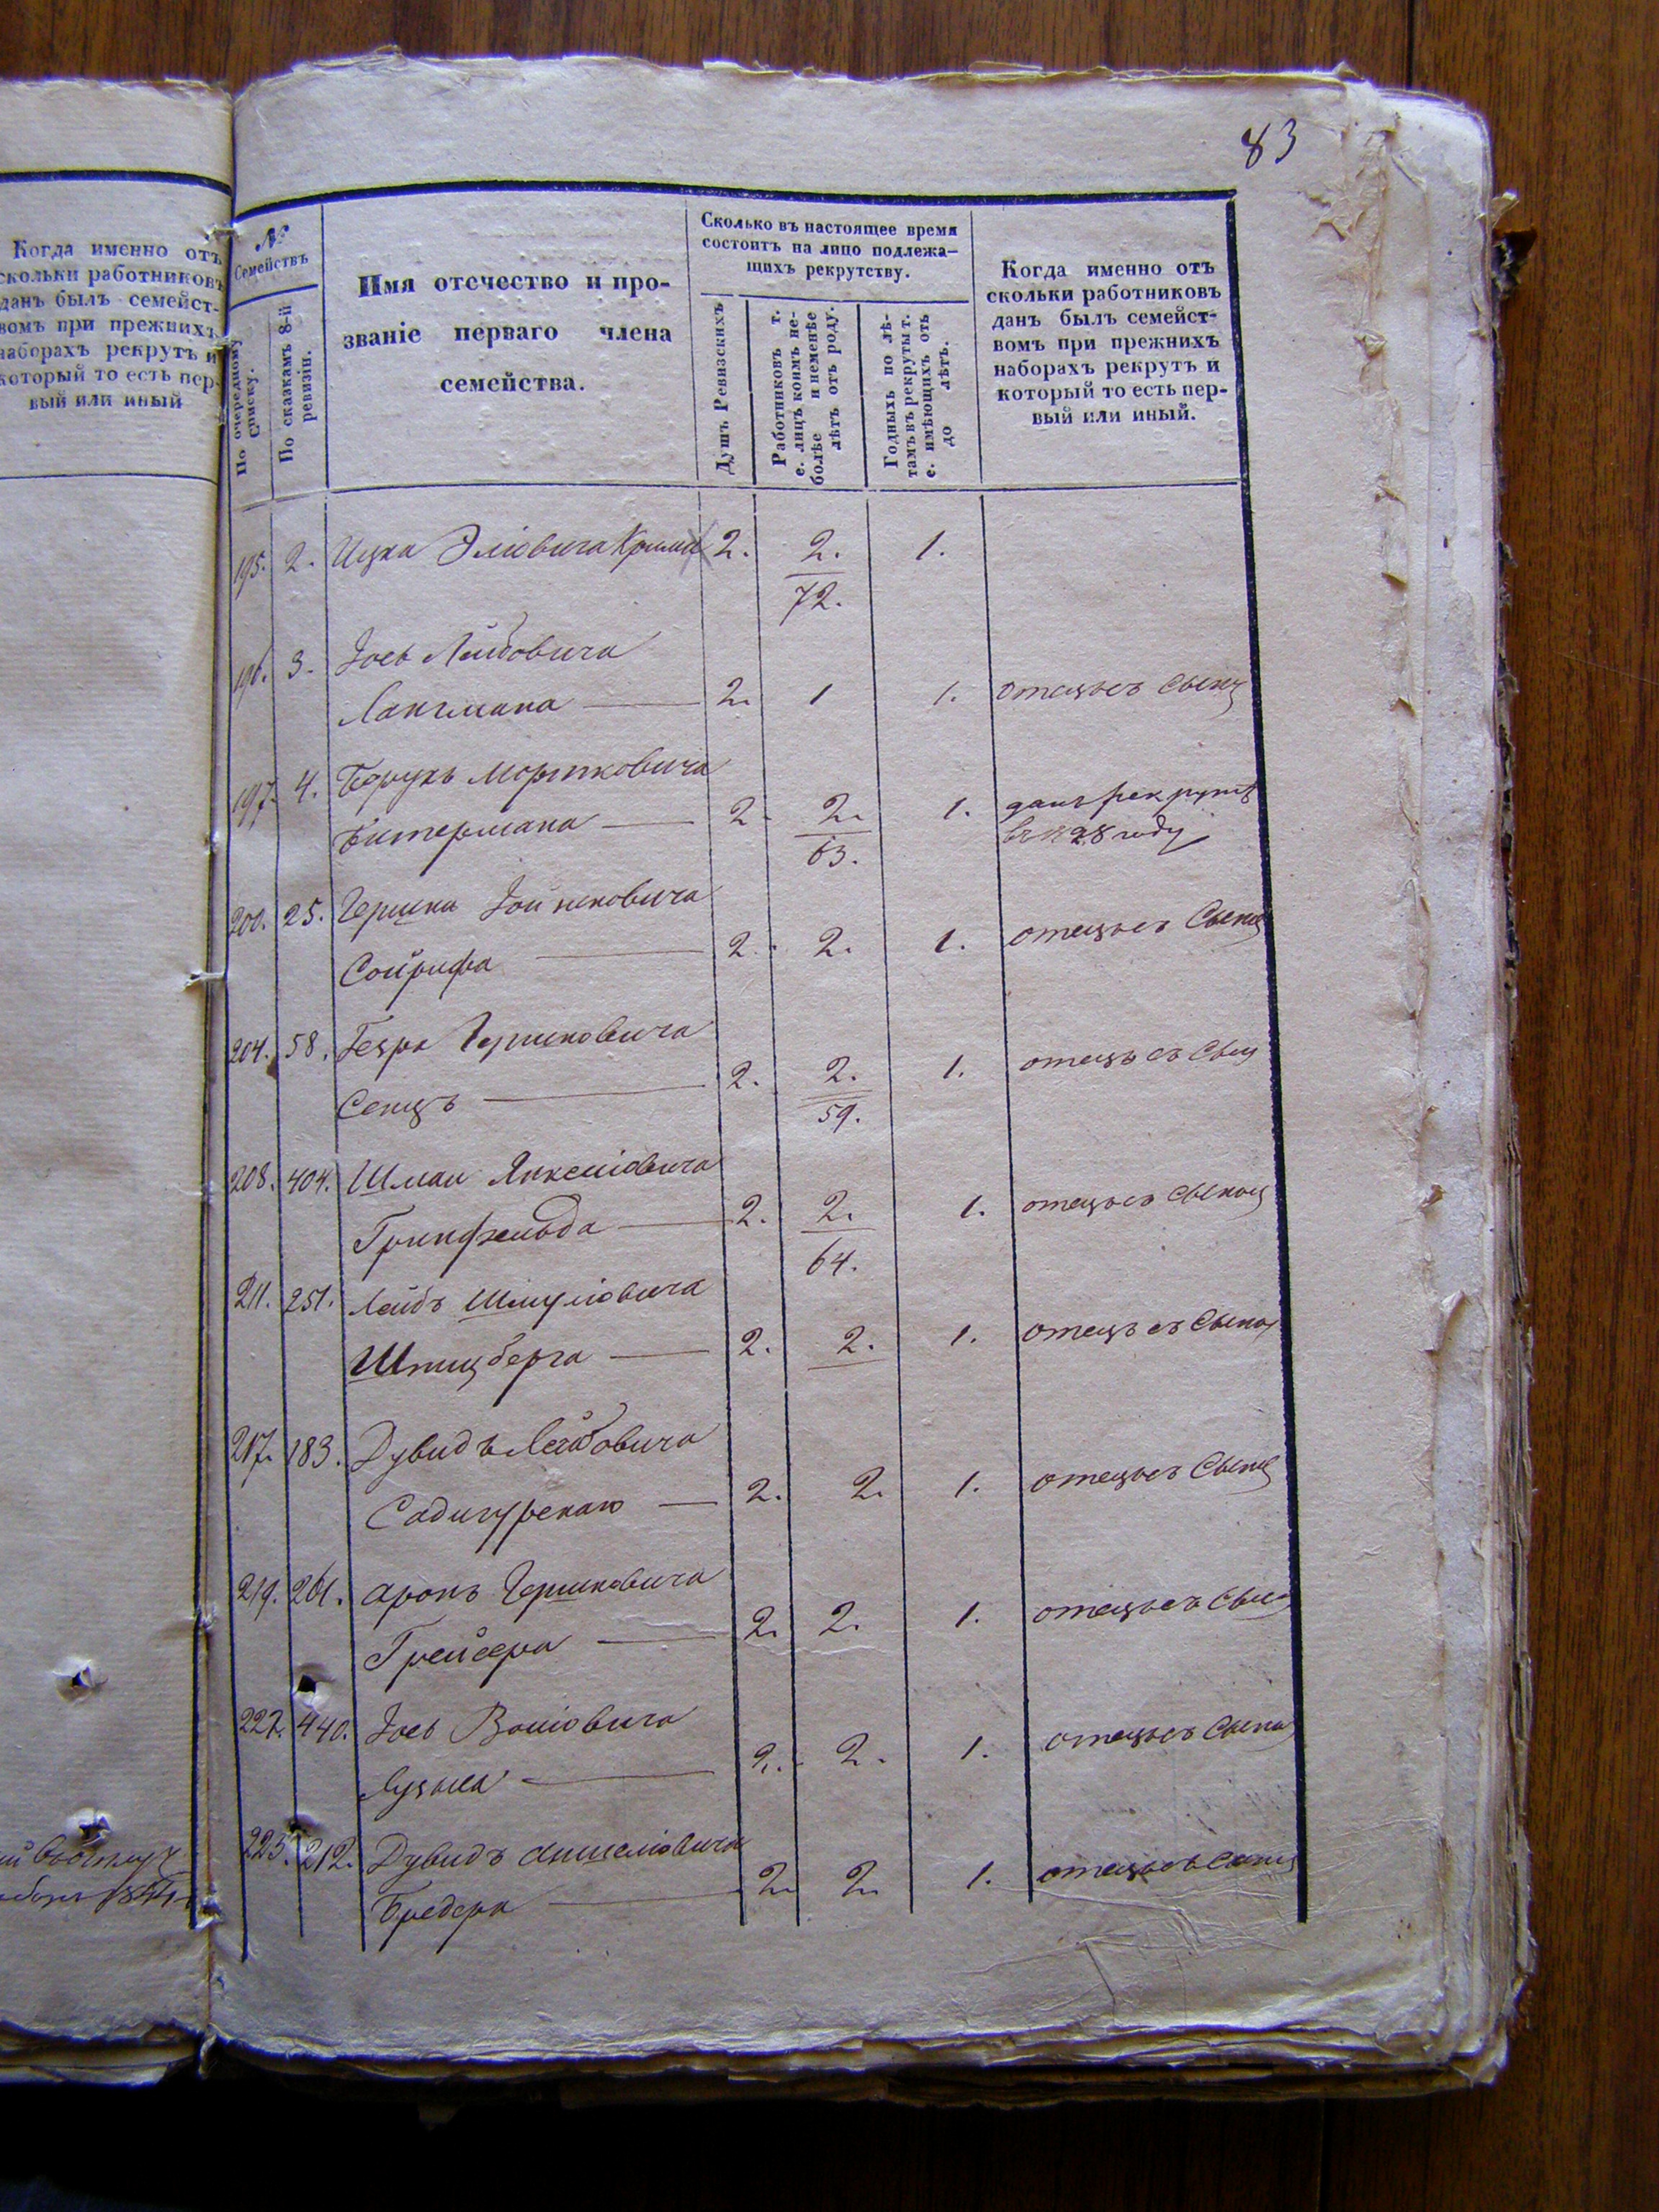 83
Когда именно отъ
скольки работниковъ
данъ былъ семейст-
вомъ при прежнихъ
наборахъ рекрутъ и
который то есть пер-
вый или иный
№
Семействъ
По очередному
Списку.
По сказкамъ 8-й
ревизіи.
Имя отечество и про-
званіе перваго члена
семейства.
Сколько въ настоящее время
состоитъ на лицо подлежа-
щихъ рекрутству.
Душъ Ревизскихъ
Работниковъ т.
е. лицъ коимъ не-
болѣе и неменѣе
лѣтъ отъ роду.
Годныхъ по лѣ-
тамъ въ рекруты т.
е. имѣющихъ отъ
до лѣтъ.
Когда именно отъ
скольки работниковъ
данъ былъ семейст-
вомъ при прежнихъ
наборахъ рекрутъ и
который то есть пер-
вый или иный.
195. 2. Ицка Эліовича 2. 2. 1.
72.
196. 3. Іось Лейбовича
Лангмана 2. 1 1. отецъ съ сыном
197. 4. Борухъ Мортковича
Битермана 2. 2. 1. данъ рекрутъ
63. въ 1828 году
200. 25. Гершка Іойнковича
Сойрифа 2. 2. 1. отецъ съ Сыном
204. 58. Гершковича
2. 2. 1. отецъ съ Сын
59.
208. 404. Шман Янкеліовича
Гринфельда 2. 2. 1. отецъ съ сыном
64.
211. 251. Лейбъ Шмуліовича
Шпицберга 2. 2. 1. отецъ съ Сыном
217. 183. Дувидъ Лейбовича
Садигурскаго 2. 2. 1. отецъ съ Сыном
219. 261. Аронъ Гершковича
Грейсера 2. 2. 1. отецъ съ Сыно
222. 440. Іось Воліовича
2. 2. 1. отецъ съ Сыном
223. 212. Дувидъ Аншеліовича
Бредера 2. 2. 1. отецъ съ сыном